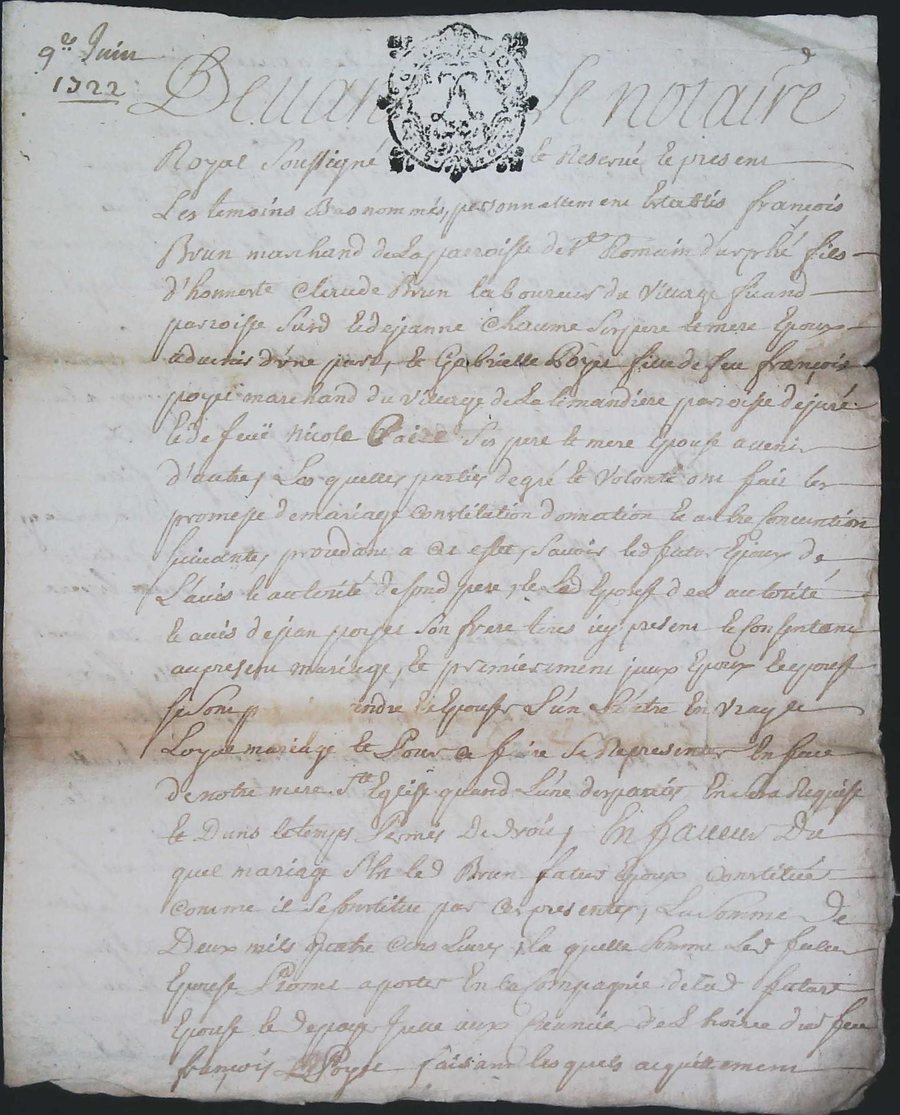 9e Juin
1722
Devant le notaire
Royal soussigné et Reservé et present
Les temoins Bas nommés, personnellement Establis françois
Brun marchand de La parroisse de St Romain durphé fils
d'honneste Claude Brun laboureur du Village
parroisse Susd et de jeanne Chaume Ses pere et mere Epoux
advenir d'une part, et Gabrielle Poyet fille de feu françois
poyet marchand du Village de La Limandiere parroisse de juré
et de feüe Nicole Paire Ses pere et mere Epouse avenir
d'autre, Les quelles parties de gré et Volonté ont fait les
promesse de mariage Constitution donnation et autre Convention
suivantes, procedant a cet effet, Savoir led futur Epoux de
L'avis et autorité de sond pere, et lad Epouse de L'autorité
et avis de jean poyet Son frere icy present et Consentant
au present mariage, et premierement iceux Epoux et Epouse
se sont p indre et Epouser L'un L'autre En Vray et
Loyal mariage et Pour ce faire Se Representer En face
de notre mere Ste Eglise quand L'une des parties En sera Requise
et Dans le temps Permis De droit, En faveur Du
quel mariage led Brun futur Epoux Constitue
comme il Se Constitue par ces presentes, La Somme De
Deux mils quatre cens Livres, la quelle Somme Led futur
Epoux Promet aporter En la Compagnie de lad future
Epouse et De payer aux de L'hoirie dud feu
françois Poyet faisant lesquels acquittement